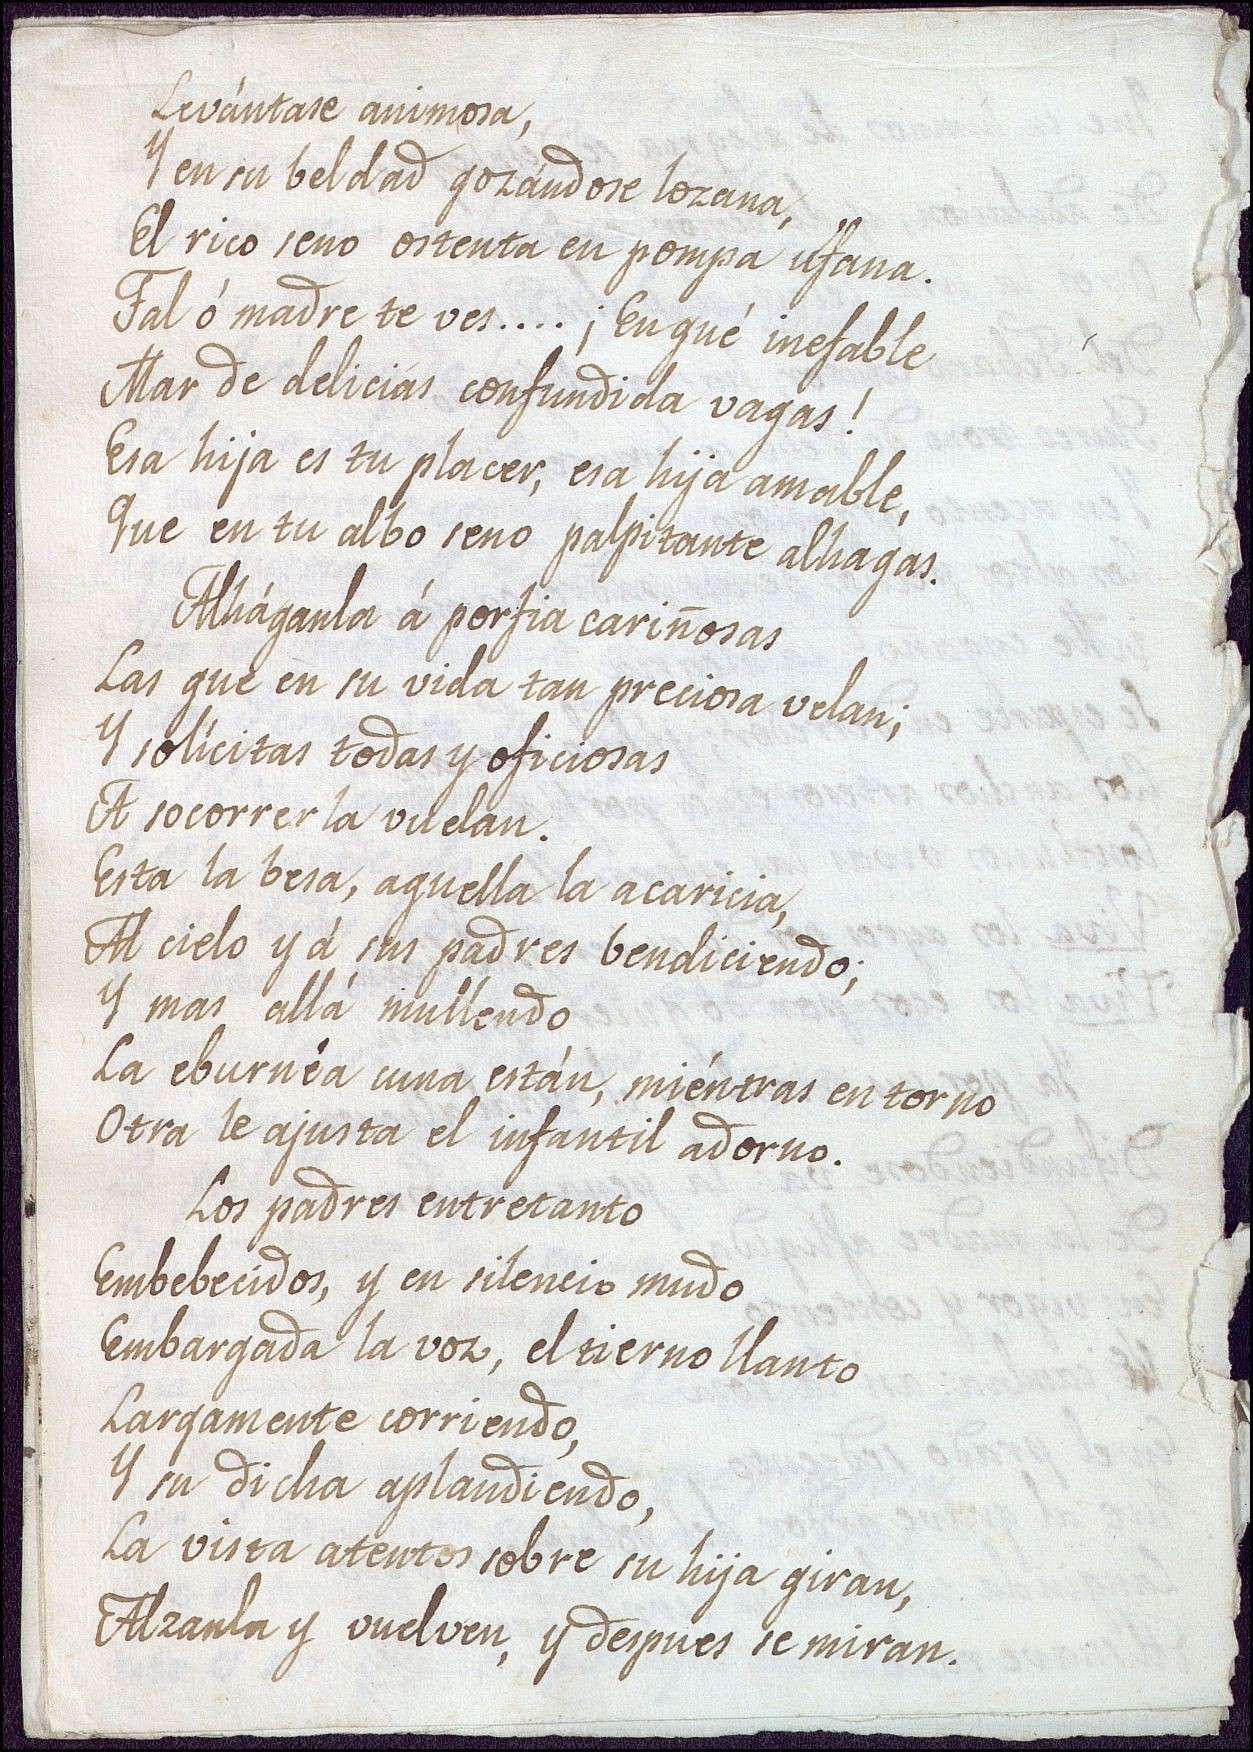 Levántase animosa,
Y en su beldad gozándose lozana,
El rico seno ostenta en pompa ufana.
Tal ó madre te ves.... ¡En qué inefable
Mar de delicias confundida vagas!
Esa hija es tu placer, esa hija amable,
Que en tu albo seno palpitante alhagas.
Alháganla á porfia cariñosas
Las que en su vida tan preciosa velan;
Y solícitas todas y oficiosas
A socorrerla vuelan.
Esta la besa, aquella la acaricia,
Al cielo y á sus padres bendiciendo;
Y mas allá mullendo
La eburnéa cuna están, miéntras en torno
Otra le ajusta el infantil adorno.
Los padres entretanto
Embebecidos, y en silencio mudo
Embargada la voz, el tierno llanto
Largamente corriendo,
Y su dicha aplaudiendo,
La vista atentos sobre su hija giran,
Alzanla y vuelven, y despues se miran.